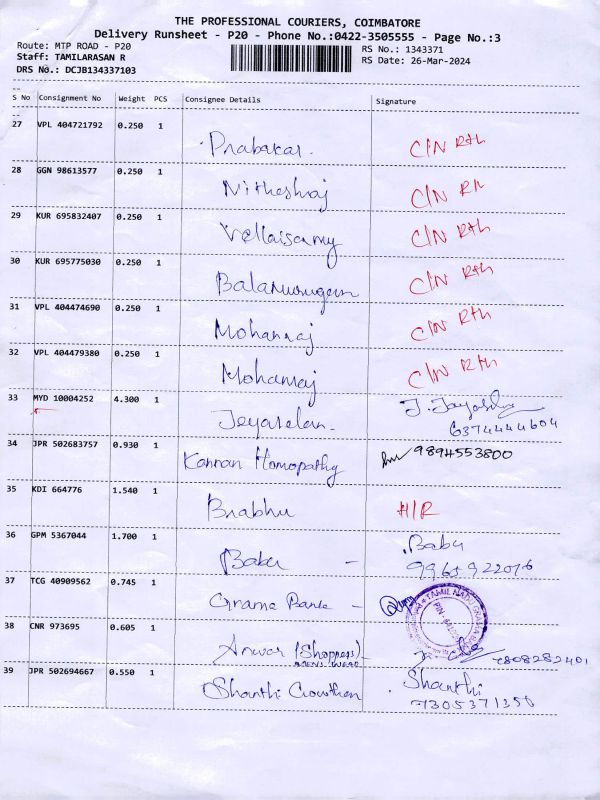 THE PROFESSIONAL COURIERS, COIMBATORE
Delivery Runsheet - P20 - Phone No.:0422-3505555 - Page No.:3
Route: MTP ROAD - P20 RS No.: 1343371
Staff: TAMILARASAN R RS Date: 26-Mar-2024
DRS No.: DCJB134337103
S No Consignment No Weight PCS Consignee Details Signature
27 VPL 404721792 0.250 1
Prabakar. C/N Rth
28 GGN 98613577 0.250 1
Nitheshraj C/N Rth
29 KUR 695832407 0.250 1
Vellaisamy C/N Rth
30 KUR 695775030 0.250 1
Balamurugan C/N Rth
31 VPL 404474690 0.250 1
Mohanraj C/N Rth
32 VPL 404479380 0.250 1
Mohanraj C/N Rth
33 MYD 10004252 4.300 1
Jeyaselan. 6374444604
34 JPR 502683757 0.930 1
Kannan Homopathy 9894553800
35 KDI 664776 1.540 1
Prabhu H/R
36 GPM 5367044 1.700 1
Babu - Babu
9965922076
37 TCG 40909562 0.745 1
Grama Bank -
38 CNR 973695 0.605 1
Anwar (Shoppers) -
MENS WEAR 7808282401
39 JPR 502694667 0.550 1
Shanthi Gowthan Shanthi
7305371358